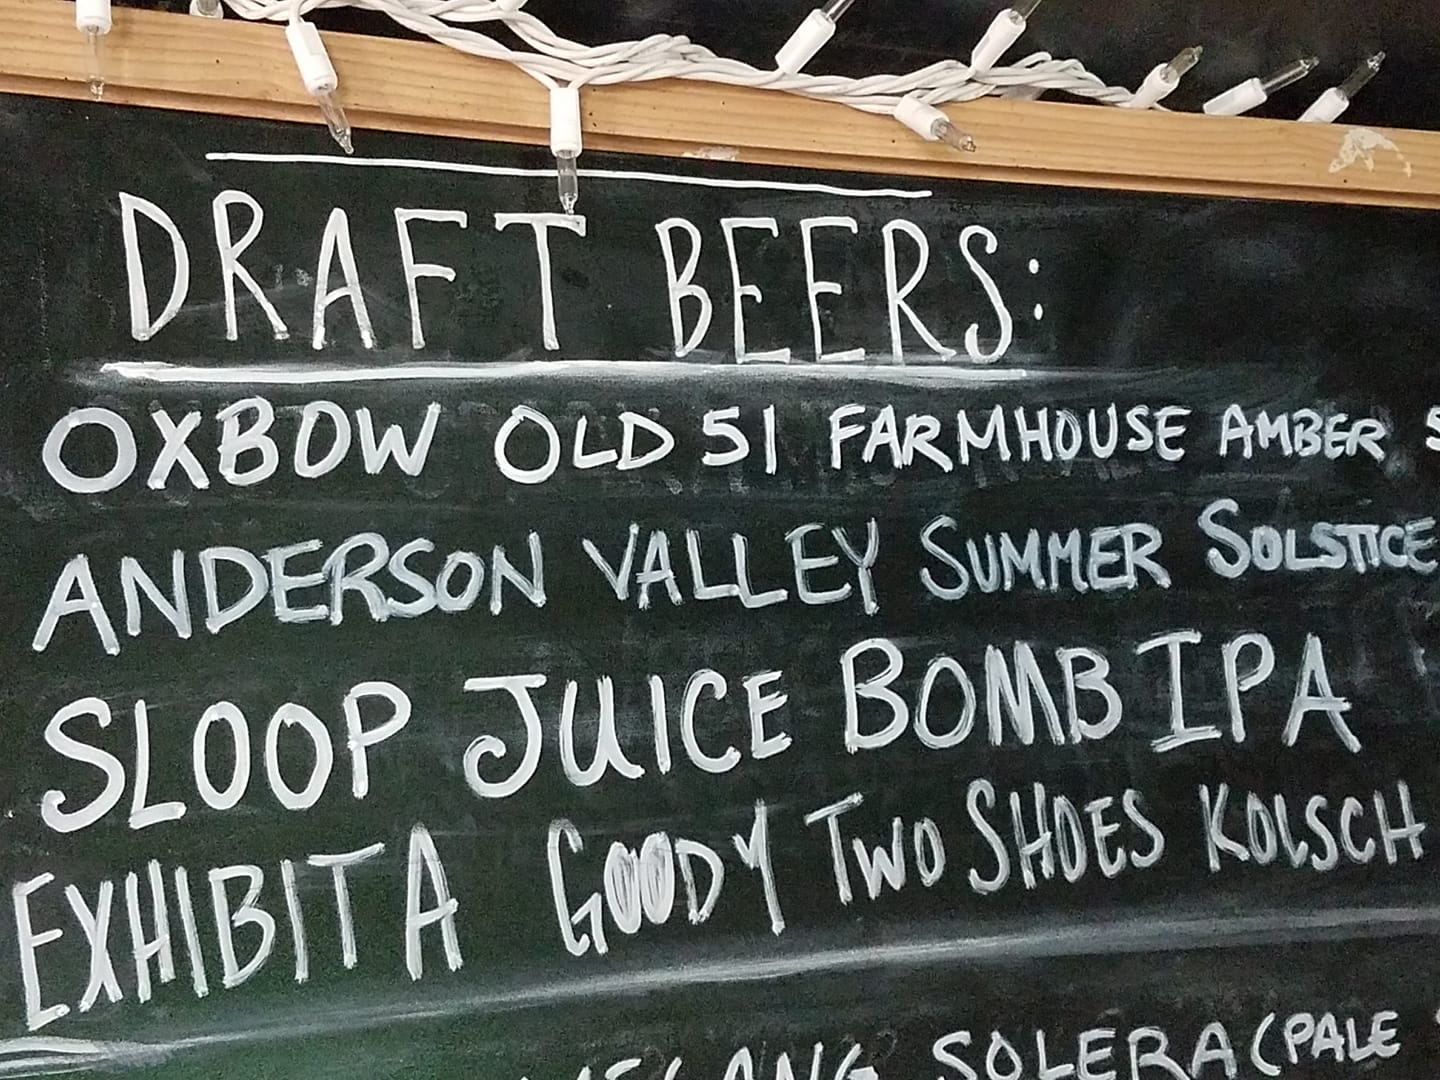 DRAFT BEERS:
OXBOW OLD 51 FARMHOUSE AMBER
ANDERSON VALLEY SUMMER SOLSTICE
SLOOP JUICE BOMB IPA
EXHIBIT A GOODY TWO SHOES KOLSCH
SOLERA (PALE